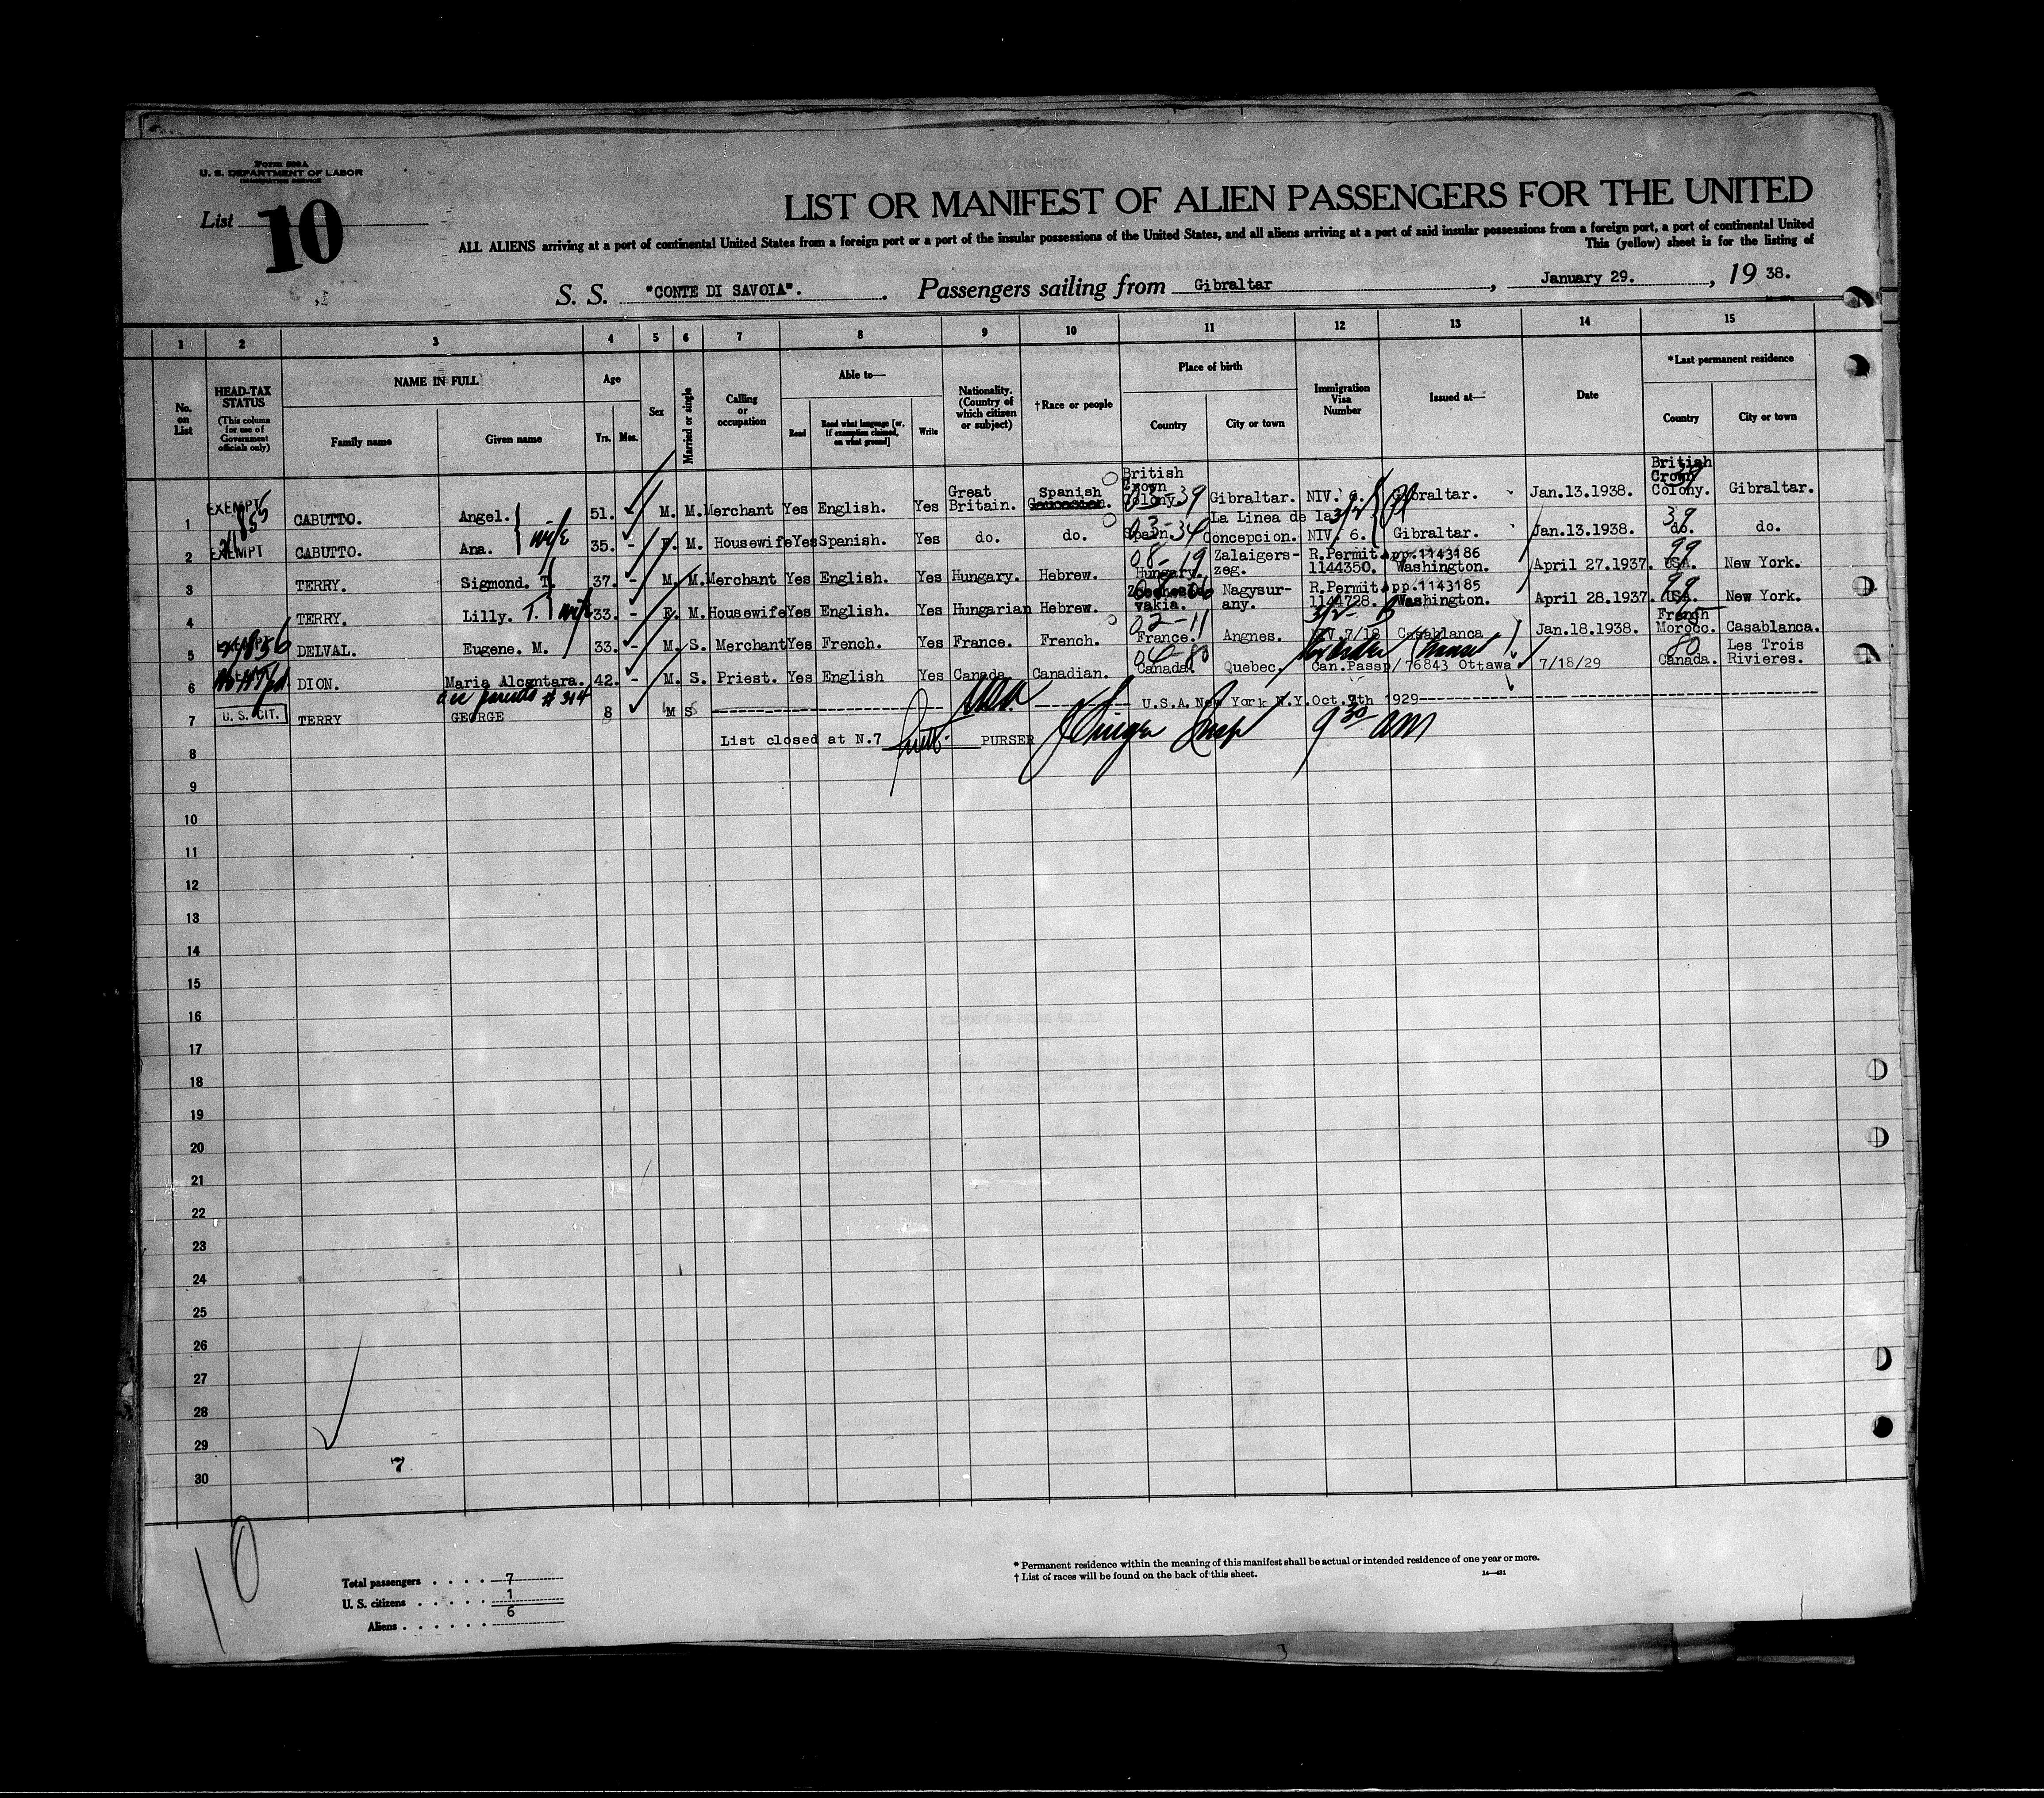 Form 500A
U. S. DEPARTMENT OF LABOR
IMMIGRATION SERVICE
List 10
LIST OR MANIFEST OF ALIEN PASSENGERS FOR THE UNITED
ALL ALIENS arriving at a port of continental United States from a foreign port or a port of the insular possessions of the United States, and all aliens arriving at a port of said insular possessions from a foreign port, a port of continental United
This (yellow) sheet is for the listing of
S. S. "CONTE DI SAVOIA". Passengers sailing from Gibraltar, January 29., 19 38.
1 2 3 4 5 6 7 8 9 10 11 12 13 14 15
No. on List
HEAD-TAX STATUS (This column for use of Government officials only)
NAME IN FULL
Family name Given name
Age
Yrs. Mos.
Sex
Married or single
Calling or occupation
Able to—
Read Read what language [or, if exemption claimed, on what ground] Write
Nationality. (Country of which citizen or subject)
†Race or people
Place of birth
Country City or town
Immigration Visa Number
Issued at—
Date
*Last permanent residence
Country City or town
1 EXEMPT CABUTTO. Angel. 51. M. M. Merchant Yes English. Yes Great Britain. Spanish British Crown Colony. 39 Gibraltar. NIV. 3/2 Gibraltar. Jan.13.1938. British Crown Colony. 39 Gibraltar.
2 EXEMPT CABUTTO. Ana. wife 35. - F. M. Housewife Yes Spanish. Yes do. do. Spain. 03-34 La Linea de la Concepcion. NIV. 6. Gibraltar. Jan.13.1938. do. 39 do.
3 TERRY. Sigmond. T. 37. - M. M. Merchant Yes English. Yes Hungary. Hebrew. Hungary. 08-19 Zalaigers-zeg. R.Permit 1144350. App.1143186 Washington. April 27.1937. USA. 99 New York.
4 TERRY. Lilly. T. wife 33. - F. M. Housewife Yes English. Yes Hungarian Hebrew. vakia. Nagysur-any. R.Permit 1144728. App.1143185 Washington. April 28.1937. USA. 99 New York.
5 DELVAL. Eugene. M. 33. - M. S. Merchant Yes French. Yes France. French. France. 02-11 Angnes. 3/2 NIV.7/18 Casablanca Jan.18.1938. French Morocc. Casablanca.
6 DION. Maria Alcantara. 42. - M. S. Priest. Yes English Yes Canada. Canadian. Canada. 04-80 Quebec. Can.Passp/76843 Ottawa 7/18/29 Canada. 80 Les Trois Rivieres.
7 U. S. CIT. TERRY GEORGE see parents # 314 8 M S USA U.S.A. New York N.Y. Oct.9th 1929
8 List closed at N.7 PURSER 9 30 am
9
10
11
12
13
14
15
16
17
18
19
20
21
22
23
24
25
26
27
28
29
30
7
10
Total passengers . . . . 7
U. S. citizens . . . . . 1
Aliens . . . . . . 6
* Permanent residence within the meaning of this manifest shall be actual or intended residence of one year or more.
† List of races will be found on the back of this sheet.
14—421
3